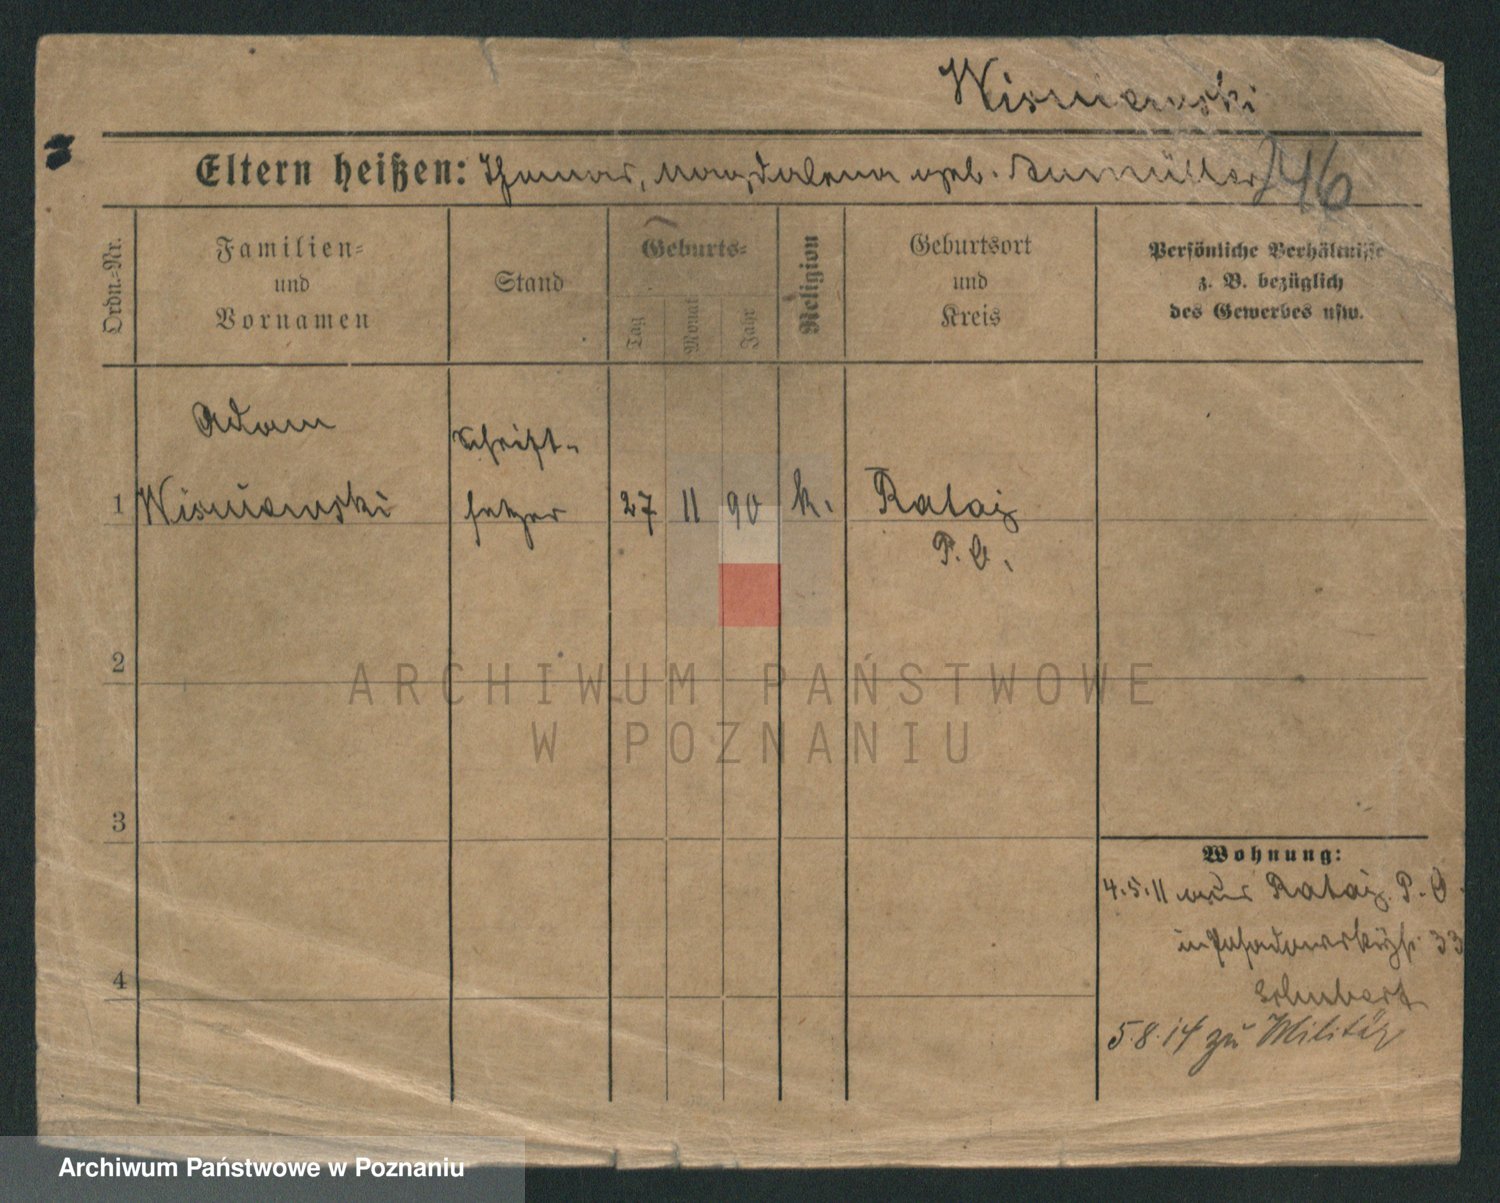 Wisniewski
Eltern heißen: Thomas, Magdalena geb. Aumüller
246
Ordn.=Nr.
Familien=
und
Vornamen
Stand
Geburts=
Tag
Monat
Jahr
Religion
Geburtsort
und
Kreis
Persönliche Verhältnisse
z. B. bezüglich
des Gewerbes usw.
1
Adam
Wisniewski
Schrift-
setzer
27
11
90
k.
Rataj
P. O.
2
3
4
Wohnung:
4.5.11 aus Rataj P. O.
in 33
Schubert
5.8.14 zu Militär
ARCHIWUM PAŃSTWOWE
W POZNANIU
Archiwum Państwowe w Poznaniu